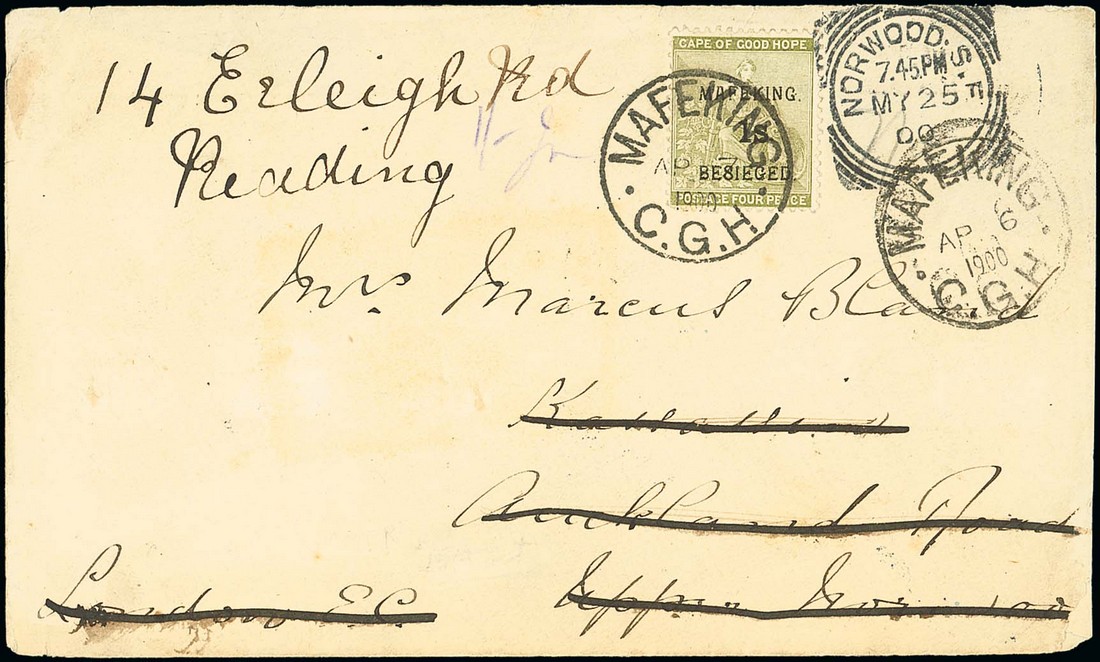 14 Erleigh Rd
Reading
CAPE OF GOOD HOPE
MAFEKING.
1s
BESIEGED.
POSTAGE FOUR PENCE
MAFEKING
AP 7
1900
C.G.H.
NORWOOD. S.E
7.45.PM
MY 25
00
MAFEKING
AP 6
1900
C.G.H
Mrs Marcus
Auckland Road
Upper Norwood
London E.C.